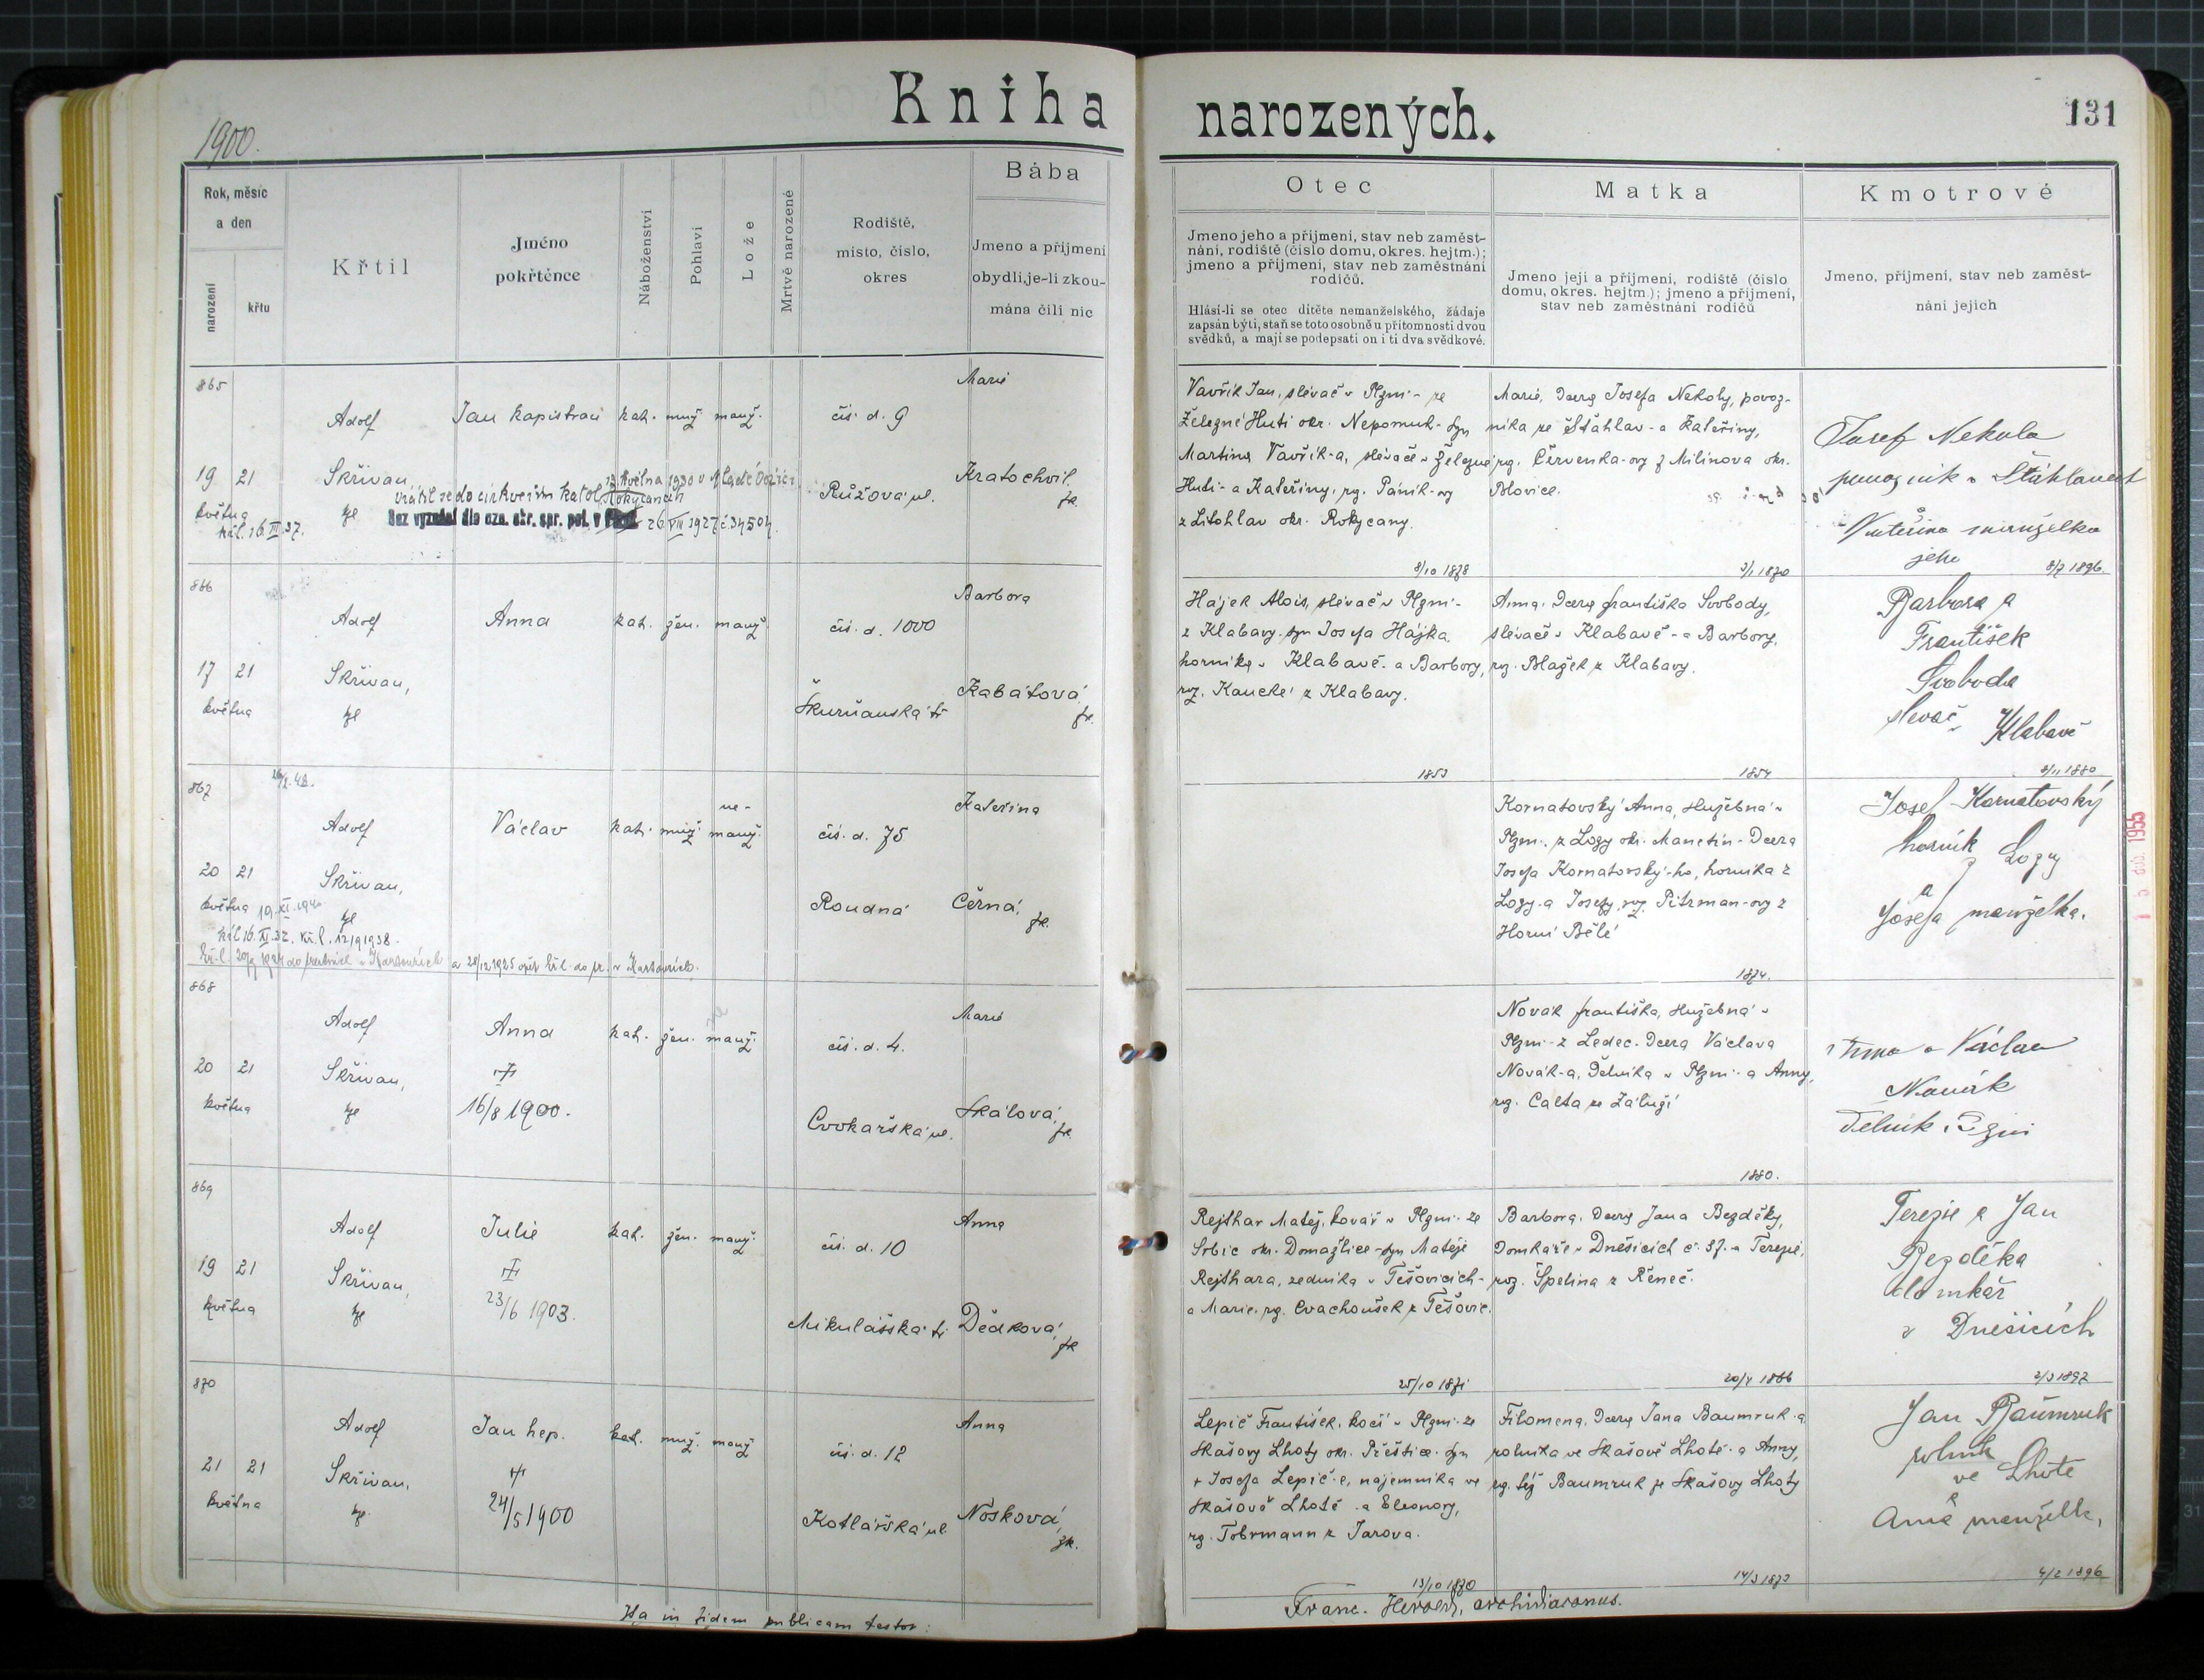 Kniha narozených.
131
1900.
Rok, měsíc
a den
narození
křtu
Křtil
Jméno
pokřtěnce
Náboženství
Pohlaví
Lože
Mrtvě narozené
Rodiště,
místo, číslo,
okres
Bába
Jmeno a příjmení
obydlí, je-li zkou-
mána čili nic
Otec
Jmeno jeho a příjmení, stav neb zaměst-
nání, rodiště (číslo domu, okres. hejtm.);
jmeno a příjmení, stav neb zaměstnání
rodičů.
Hlásí-li se otec dítěte nemanželského, žádaje
zapsán býti, staň se toto osobně u přítomnosti dvou
svědků, a mají se podepsati on i ti dva svědkové.
Matka
Jmeno její a příjmení, rodiště (číslo
domu, okres. hejtm.); jmeno a příjmení,
stav neb zaměstnání rodičů
Kmotrové
Jmeno, příjmení, stav neb zaměst-
nání jejich
865
19 21
května
Adolf
Skřivan,
Jan Kapistran
kat. muž. manž.
čís. d. 9
Růžová ul.
Marie
Kratochvil,
zk.
13. května 1930 v
vrátil se do církve řím katol.
Rokycanech
Bez vyznání dle ozn. okr. spr. pol. v
26. VIII 1927 č. 34504.
16. III. 37.
Vavřík Jan, slévač v Plzni - ze
Železné Huti okr. Nepomuk - syn
Martina Vavřík-a, slévače v Železné
Huti - a Kateřiny, rz. Páník-ovy
z Litohlav okr. Rokycany.
8/10 1878
Marie, dcera Josefa Nekoly, povoz-
níka ze Štáhlav - a Kateřiny,
rz. Červenka-ovy z Milínova okr.
Blovice.
3/1 1870
Josef Nekola
Štáhlavech
Kateřina manželka
jeho
8/7 1896.
866
17 21
května
Adolf
Skřivan,
Anna
kat. žen. manž.
čís. d. 1000
Škvrňanská tř
Barbora
Kabátová,
zk.
Hájek Alois, slévač v Plzni -
z Klabavy, syn Josefa Hájka,
horníka v Klabavě - a Barbory,
roz. Kaucké z Klabavy.
1853
Anna, dcera Františka Svobody,
slévače v Klabavě - a Barbory,
roz. Blažek z Klabavy.
1854
Barbora a
František
Svoboda
slevač v Klabavě
8/11 1880
867
20 21
května
Adolf
Skřivan,
Václav
kat. muž. ne-
manž.
čís. d. 75
Roudná
Kateřina
Černá,
zk.
19. XI. 1940
16. XI. 37. Kř. l. 12/9 1938.
a 28/12 1925 opět kř. l. do
Kornatovský Anna, služebná v
Plzni, z Lozy okr. Manetín - dcera
Josefa Kornatovský-ho, horníka z
Lozy - a Josefy, roz. Pitrman-ovy z
Horní Bělé
1874.
Josef Kornatovský
horník
z Lozy
a
Josefa manželka.
1955
868
20 21
května
Adolf
Skřivan,
Anna
16/8 1900.
kat. žen. manž.
čís. d. 4.
Cvokařská ul.
Marie
Skálová,
zk.
Novák Františka, služebná v
Plzni - z Ledec. dcera Václava
Novák-a, dělníka v Plzni - a Anny,
rz. Calta ze Záluží
1880.
Anna a Václav
Novák
dělník v Plzni
869
19 21
května
Adolf
Skřivan,
Julie
23/6 1903.
kat. žen. manž.
čís. d. 10
Mikulášská tř
Anna
Dědková,
zk
Rejthar Matěj, kovář v Plzni - ze
Srbic okr. Domažlice - syn Matěje
Rejthara, zedníka v Těšovicích -
a Marie, rz. Cvachoušek z Těšovic.
25/10 1871
Barbora, dcera Jana Bezděky,
domkáře v Dněšicích č. 37. a Terezie,
roz. Špelina z Řeneč.
20/4 1866
Terezie a Jan
Bezděka
domkář
v Dnešicích
2/3 1897
870
21 21
května
Adolf
Skřivan,
Jan Nep.
24/5 1900
kat. muž. manž
čís. d. 12
Kotlářská ul.
Anna
Nosková,
zk.
Lepič František, kočí v Plzni - ze
Skašovy Lhoty okr. Přeštice. syn
+ Josefa Lepič-e, nájemníka ve
Skašově Lhotě - a Eleonory,
rz. Tobrmann z Jarova.
13/10 1870
Filomena, dcera Jana Baumruk-a
rolníka ve Skašově Lhotě - a Anny,
rz. též Baumruk ze Skašovy Lhoty
14/3 1873
Jan Baumruk
rolník
ve Lhotě
a
Anna manželk,
4/2 1896
Ita in fidem publicam testor:
Franc. Herold, archidiaconus.